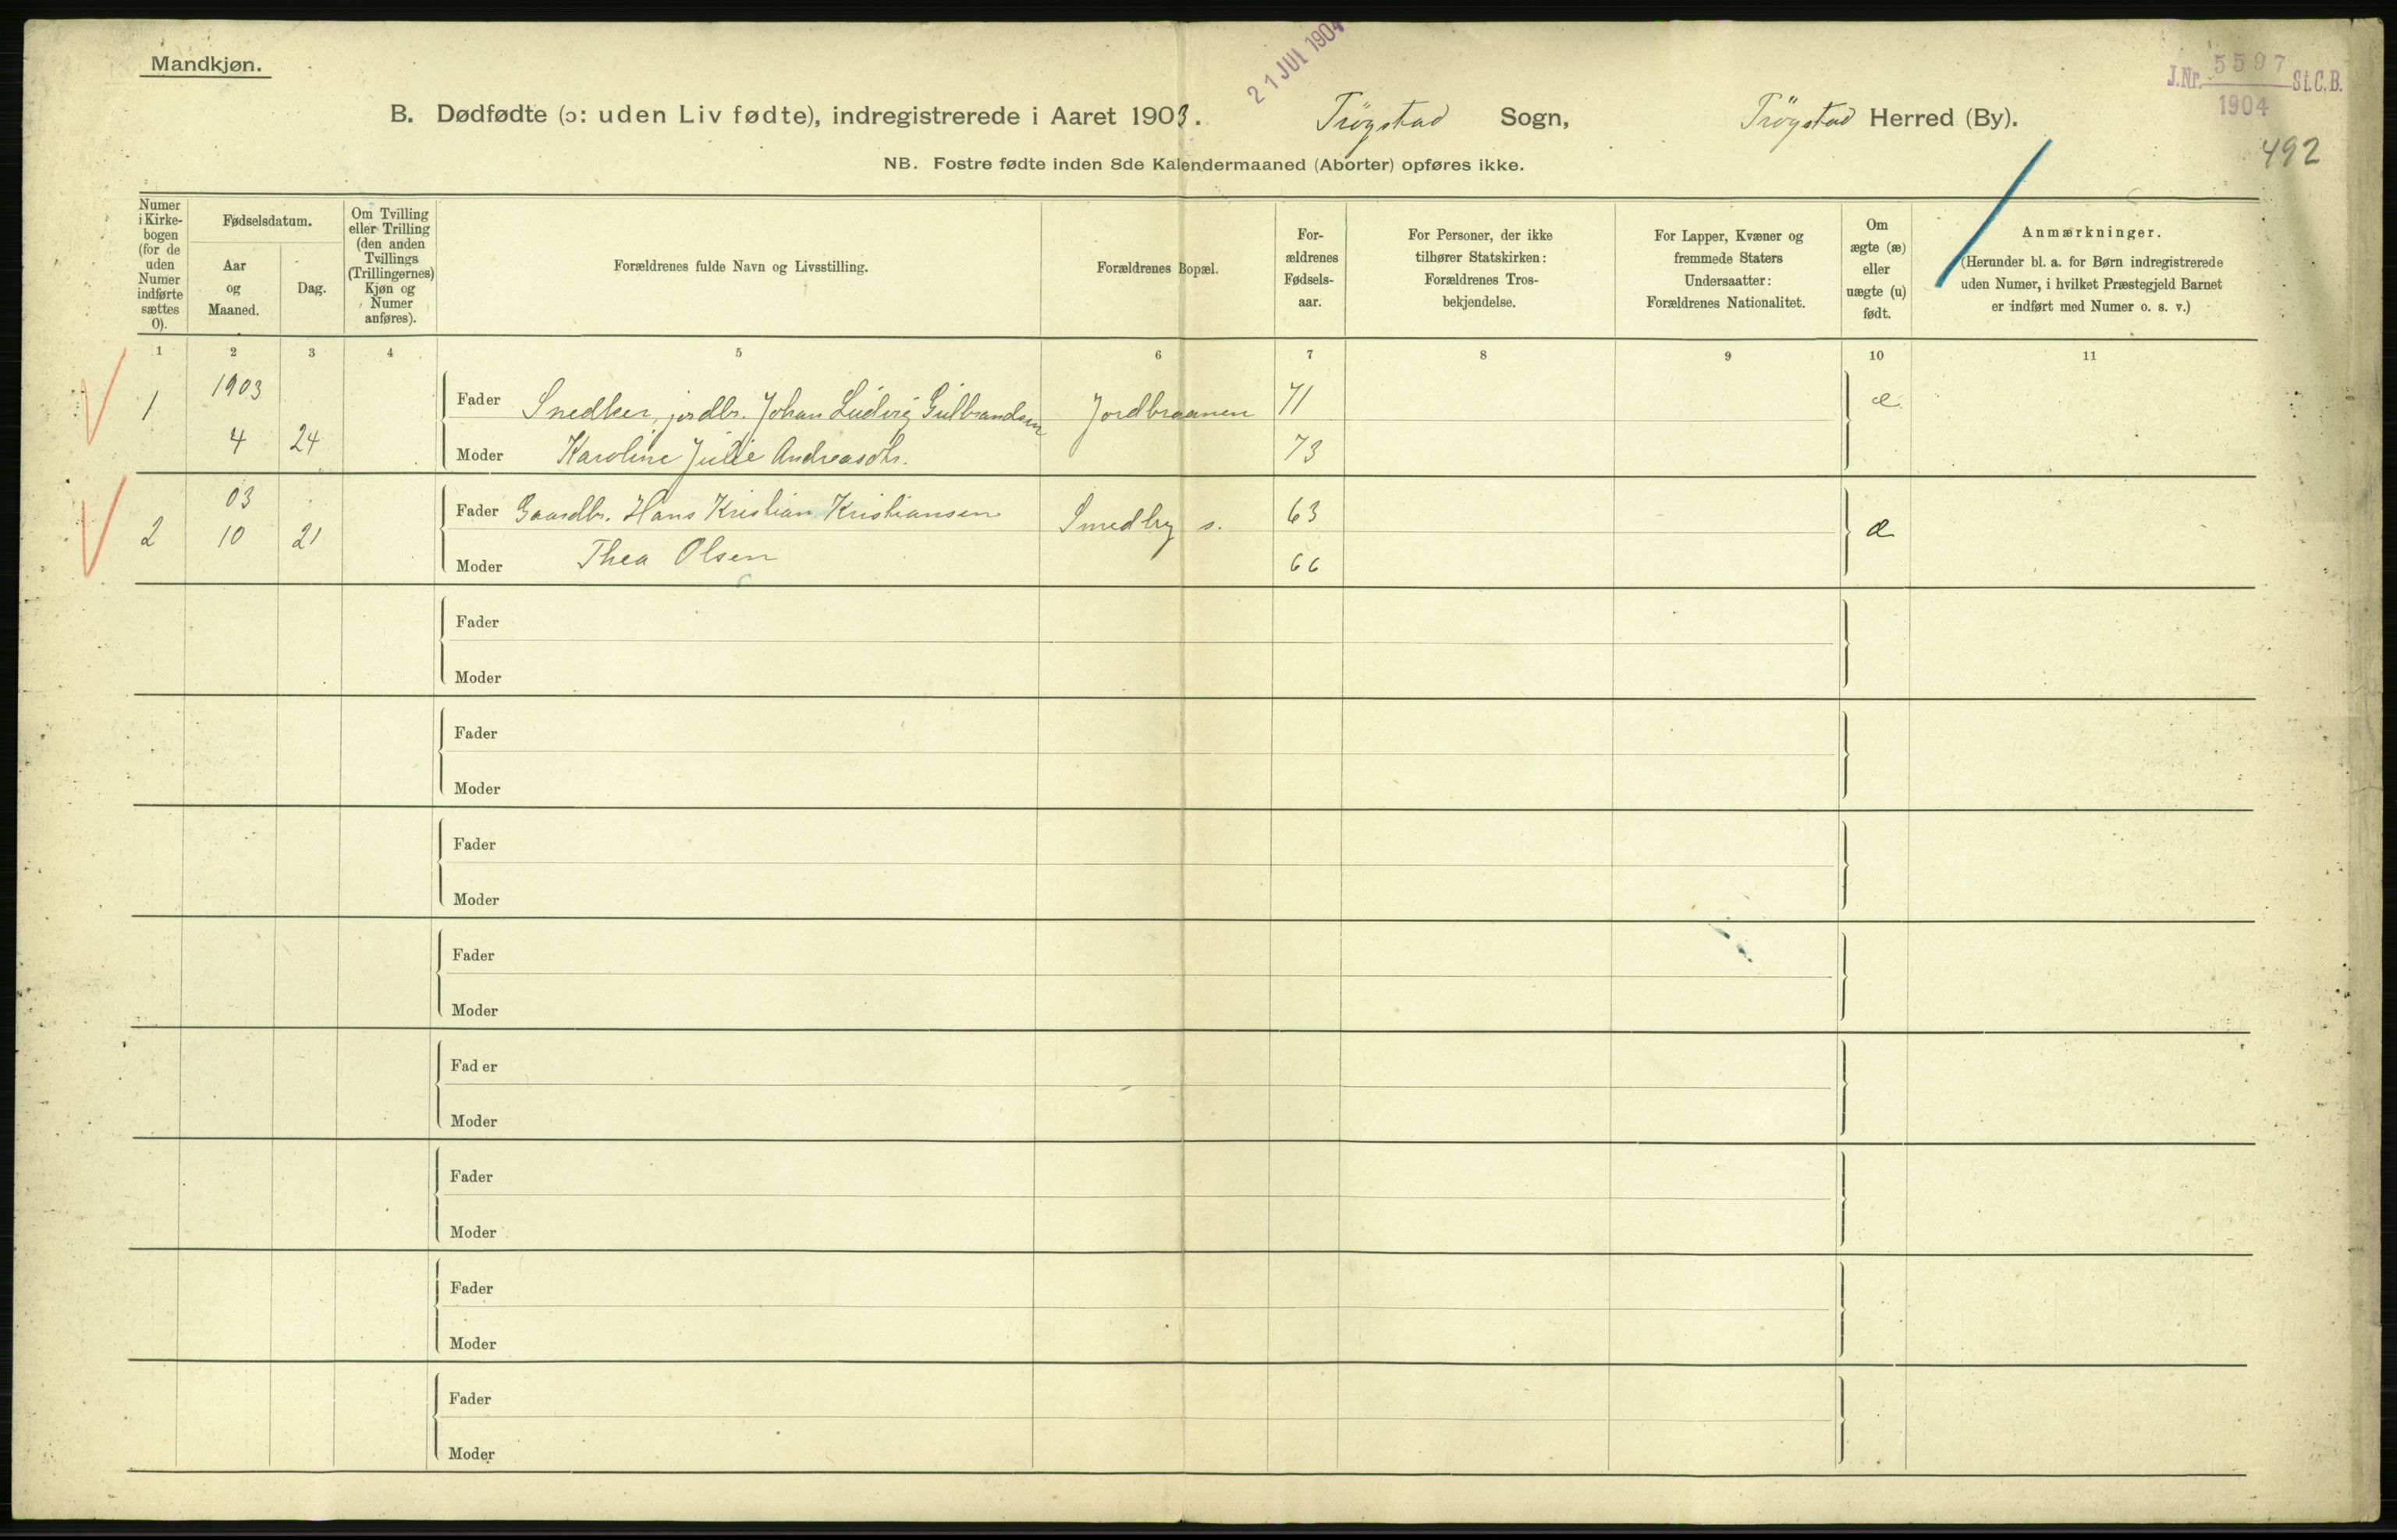 Mandkjøn.
21 JUL 1904
J.Nr. 5597 St.C.B.
1904
492
B. Dødfødte (ɔ: uden Liv fødte), indregistrerede i Aaret 1903. Trögstad Sogn, Trögstad Herred (By).
NB. Fostre fødte inden 8de Kalendermaaned (Aborter) opføres ikke.
Numer
i Kirke-
bogen
(for de
uden
Numer
indførte
sættes
0).
Fødselsdatum.
Aar
og
Maaned.
Dag.
Om Tvilling
eller Trilling
(den anden
Tvillings
(Trillingernes)
Kjøn og
Numer
anføres).
Forældrenes fulde Navn og Livsstilling.
Forældrenes Bopæl.
For-
ældrenes
Fødsels-
aar.
For Personer, der ikke
tilhører Statskirken:
Forældrenes Tros-
bekjendelse.
For Lapper, Kvæner og
fremmede Staters
Undersaatter:
Forældrenes Nationalitet.
Om
ægte (æ)
eller
uægte (u)
født.
Anmærkninger.
(Herunder bl. a. for Børn indregistrerede
uden Numer, i hvilket Præstegjeld Barnet
er indført med Numer o. s. v.)
1 2 3 4 5 6 7 8 9 10 11
1903
1 Fader Snedker, jordbr. Johan Ludvig Gulbrandsen Jordbraanen 71 æ
4 24 Moder Karoline Julie Andreasdtr. 73
03
2 Fader Gaardbr. Hans Kristian Kristiansen Smedby s. 63 æ
10 21 Moder Thea Olsen 66
Fader
Moder
Fader
Moder
Fader
Moder
Fader
Moder
Fader
Moder
Fader
Moder
Fader
Moder
Fader
Moder